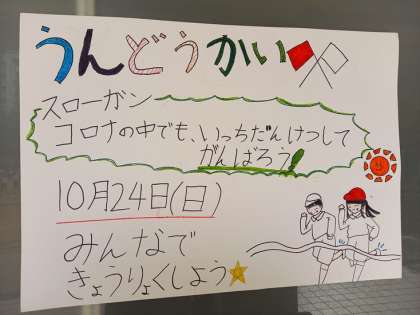 うんどうかい
スローガン
コロナの中でも、いっちだんけつして
がんばろう!
10月24日(日)
みんなで
きょうりょくしよう